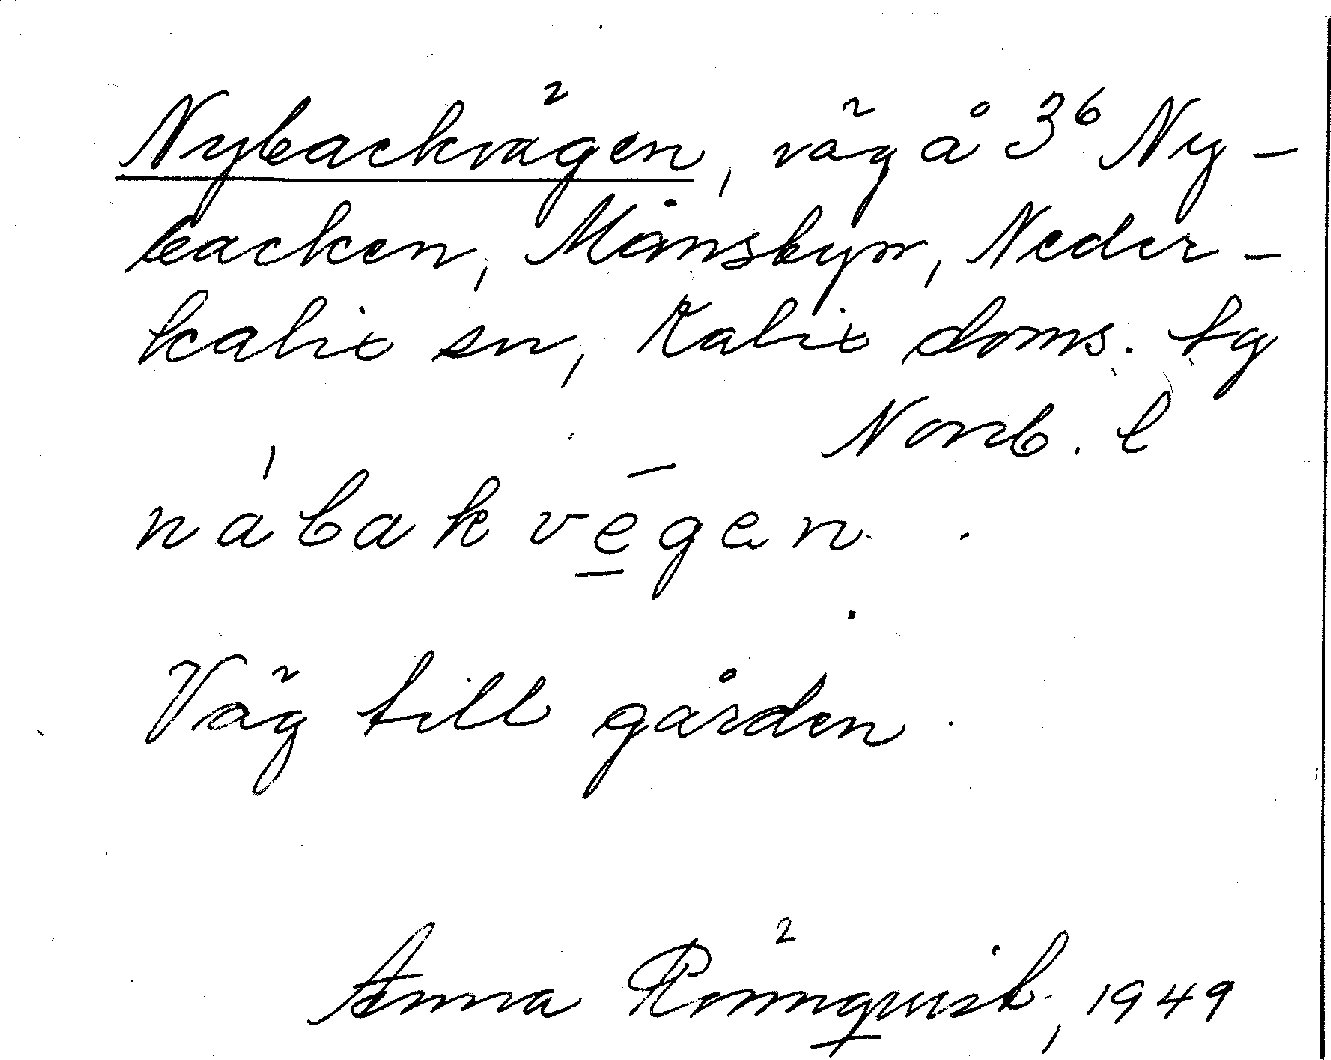 Nybackvägen, väg å 3⁶ Ny-
backen, Månsbyn, Neder-
kalix sn, Kalix doms. tg
Norrb. l
nábakvē̠gen.
Väg till gården
Anna Rönnqvist, 1949